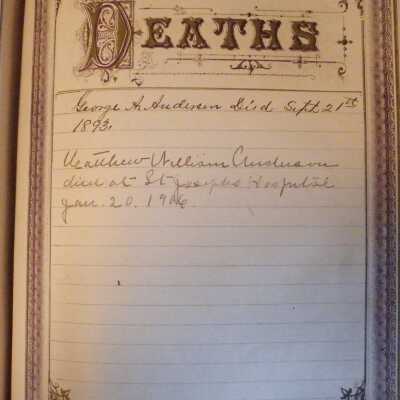 DEATHS
George A. Andersen Died Sept 21st
1893.
Matthew William Anderson
died at St Josephs Hospital
Jan. 20. 1906.